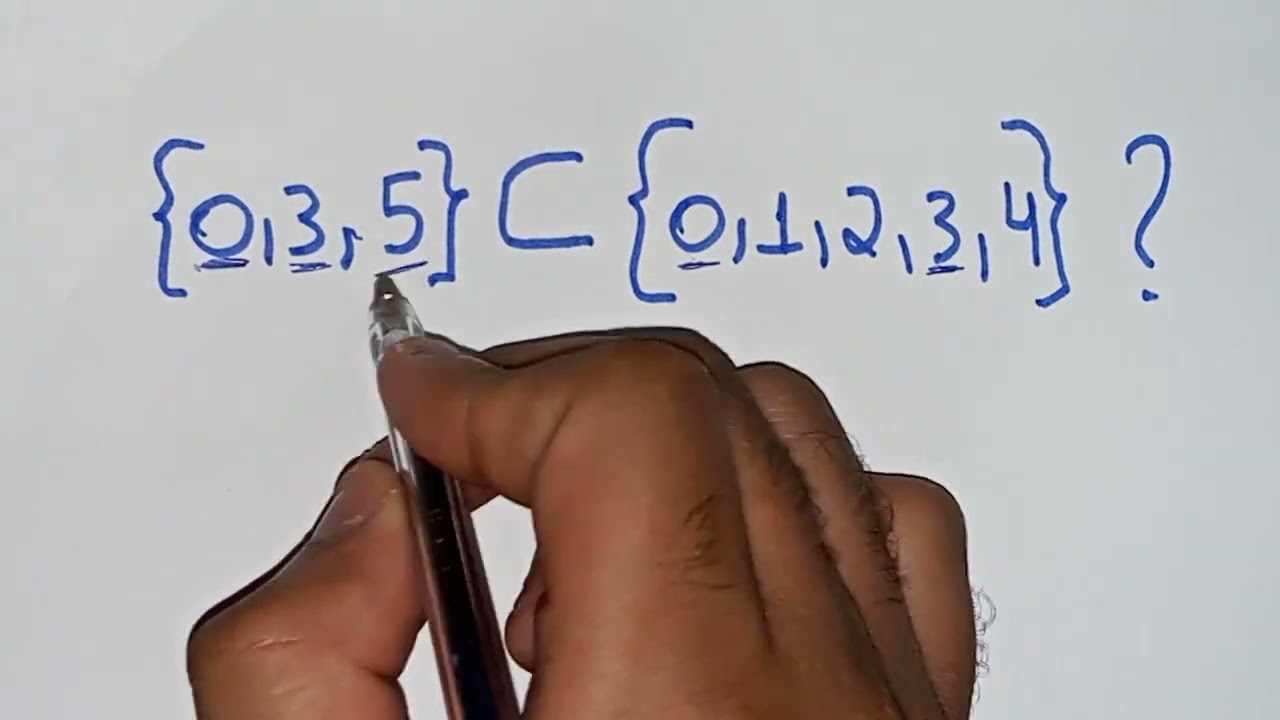 {0,3,5} ⊂ {0,1,2,3,4} ?